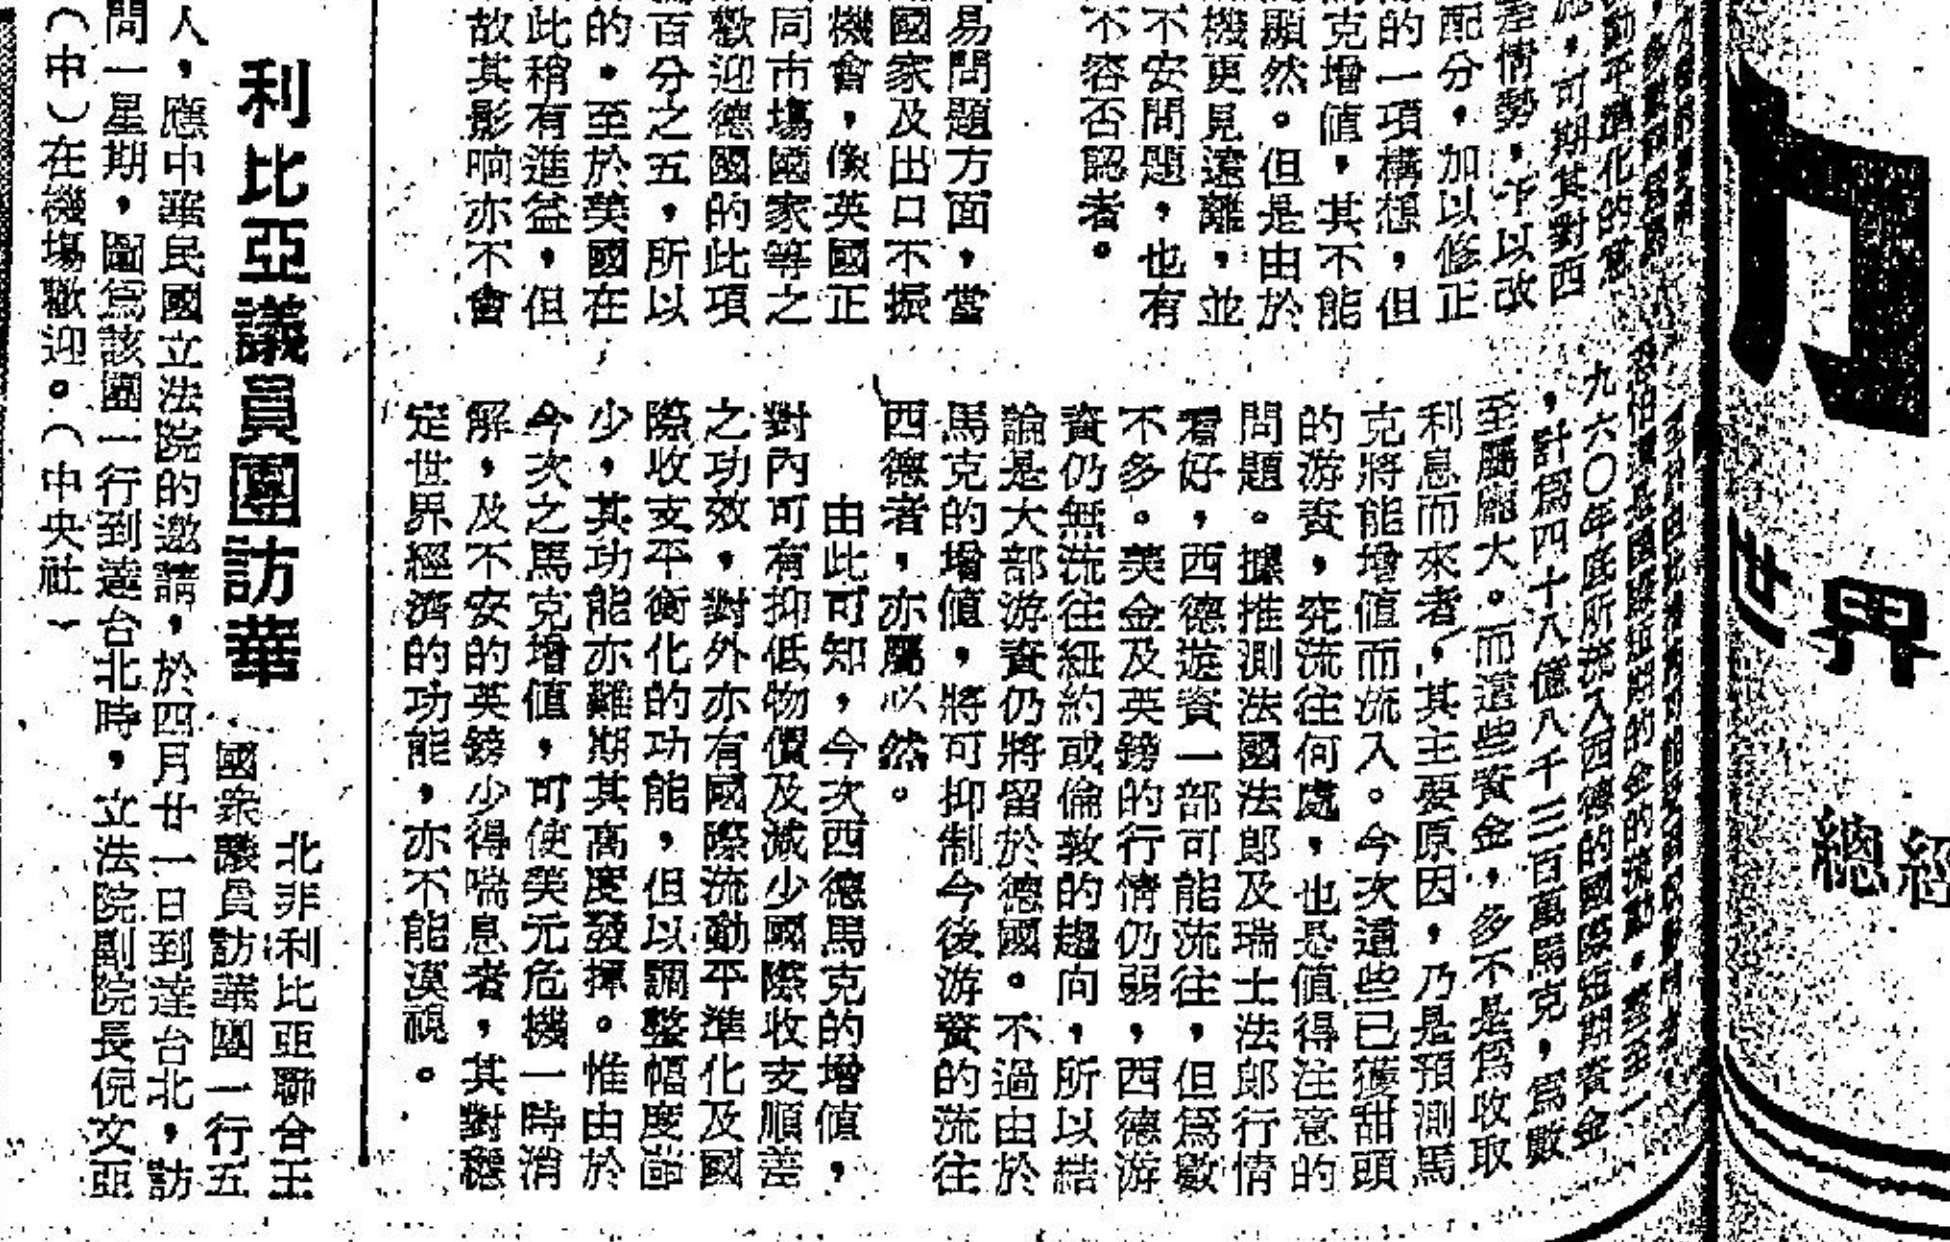 世界
總經
差情勢，予以改
配分，加以修正
的一項構想，但
克增值，其不能
顯然。但是由於
機更見遠離，並
不安問題，也有
不容否認者。
易問題方面，當
國家及出口不振
機會，像英國正
同市場國家等之
歡迎德國的此項
百分之五，所以
的。至於美國在
此稍有進益，但
故其影响亦不會
九六〇年底所流入西德的國際短期資金
，計爲四十八億八千三百萬馬克，爲數
至屬龐大。而這些資金，多不是爲收取
利息而來者，其主要原因，乃是預測馬
克將能增值而流入。今次這些已獲甜頭
的游資，究流往何處，也是值得注意的
問題。據推測法國法郎及瑞士法郎行情
看好，西德遊資一部可能流往，但爲數
不多。美金及英鎊的行情仍弱，西德游
資仍無流往紐約或倫敦的趨向，所以結
論是大部游資仍將留於德國。不過由於
馬克的增值，將可抑制今後游資的流往
西德者，亦屬必然。
由此可知，今次西德馬克的增值，
對內可有抑低物價及減少國際收支順差
之功效，對外亦有國際流動平準化及國
際收支平衡化的功能，但以調整幅度尚
少，其功能亦難期其高度發揮。惟由於
今次之馬克增值，可使美元危機一時消
解，及不安的英鎊少得喘息者，其對穩
定世界經濟的功能，亦不能漠視。
利比亞議員團訪華
北非利比亞聯合王
國衆議員訪華團一行五
人，應中華民國立法院的邀請，於四月廿一日到達台北，訪
問一星期，圖爲該團一行到達台北時，立法院副院長倪文亞
（中）在機場歡迎。（中央社）